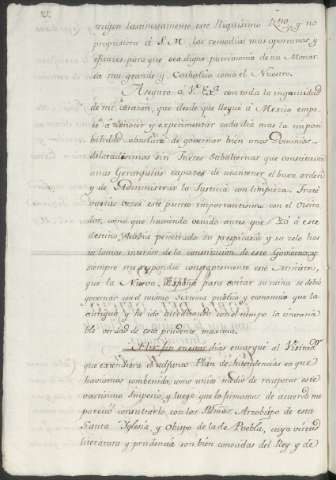 truyen lastimosamente este Riquísimo Rno. y no
propusiera á S. M. los remedios mas oportunos y
eficaces para que sea digno patrimonio de un Monar
ca tan grande y Catholico como el Nuestro.
Aseguro á V. E. con toda la ingenuidad
de mi corazón, que desde que llegué á Mexico empe
sé á conocer y experimentar cada dia mas la impo
bilidad absoluta de governar bien unos Dominios
dilatadísimos sin Gefes Subalternos que constituian
una Gerarquía capaces de mantener el buen orden
y de administrar la Justicia con limpieza. Traté
varias veces este punto importantísimo con el Visita
dor, como que haviendo venido antes que Yo á este
destino, havia penetrado su perspicacia y su zelo hasta
lo mas interior de la constitucion de este Govierno, y
siempre me respondió constantemente este Ministro,
que la Nueva España para evitar su ruina se debía
governar con el mismo sistema publico y economico que la
antigua y he ido descubriendo con el tiempo la invaria
ble verdad de esta prudente maxima.
dias encargué al Visitador
que extendiera el adjunto Plan de Intendencias en que
haviamos combenido como unico medio de recuperar este
vastisimo Imperio, y luego que lo formamos de acuerdo me
pareció consultarlo con los Arzobispo de esta
Santa Iglesia, y Obispo de la de Puebla, cuya virtud
literatura y prudencia son bien conocidas del Rey y de